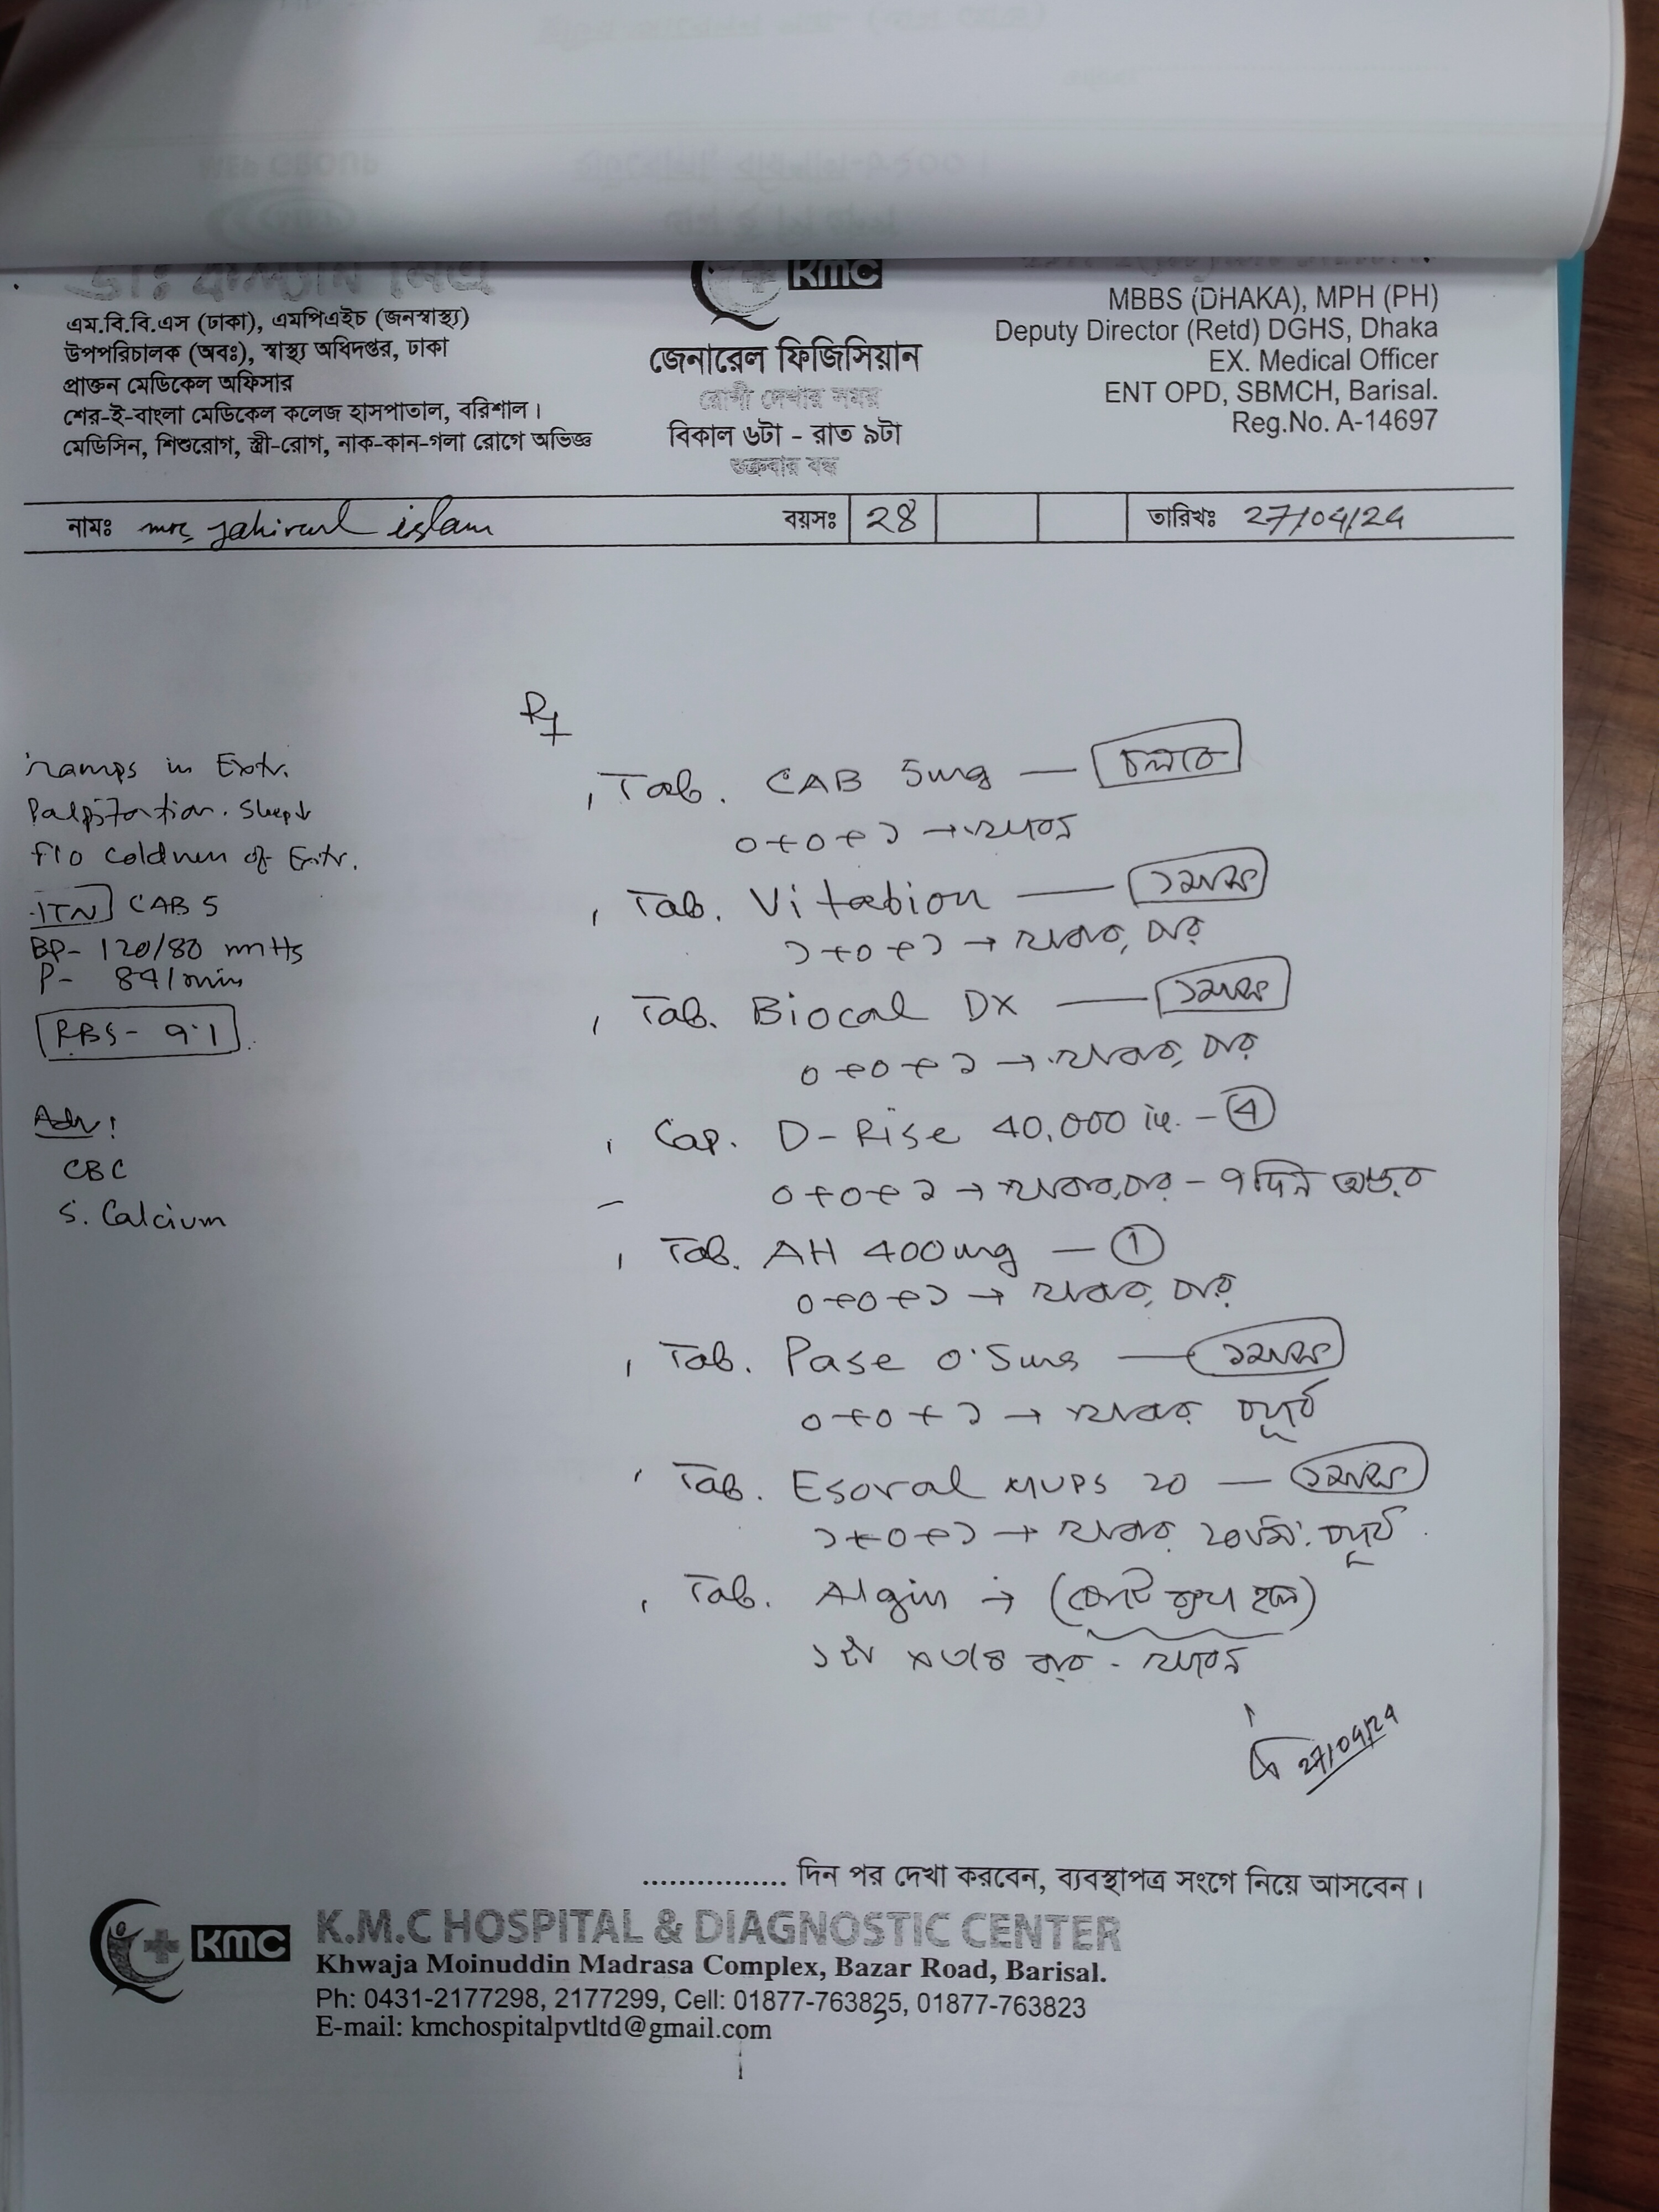 KMC
এম.বি.বি.এস (ঢাকা), এমপিএইচ (জনস্বাস্থ্য)
উপপরিচালক (অবঃ), স্বাস্থ্য অধিদপ্তর, ঢাকা
প্রাক্তন মেডিকেল অফিসার
শের-ই-বাংলা মেডিকেল কলেজ হাসপাতাল, বরিশাল।
মেডিসিন, শিশুরোগ, স্ত্রী-রোগ, নাক-কান-গলা রোগে অভিজ্ঞ
জেনারেল ফিজিসিয়ান
রোগী দেখার সময়
বিকাল ৬টা - রাত ৯টা
শুক্রবার বন্ধ
MBBS (DHAKA), MPH (PH)
Deputy Director (Retd) DGHS, Dhaka
EX. Medical Officer
ENT OPD, SBMCH, Barisal.
Reg.No. A-14697
নামঃ jahirul islam বয়সঃ 28 তারিখঃ 27/04/24
ramps in Extr.
Palpitation. Sleep↓
F/O coldness of Extr.
HTN CAB 5
BP- 120/80 mmHg
P- 84/min
RBS- 9.1
Adv:
CBC
S. Calcium
Rx
Tab. CAB 5mg — চলবে
০+০+১ →
Tab. Vitabion — ১মাস
১+০+১ → খাবার পর
Tab. Biocal DX — ১মাস
০+০+১ → খাবার পর
Cap. D-Rise 40,000 iu. - ④
০+০+১ → খাবার পর - ৭ দিন অন্তর
Tab. AH 400mg — ①
০+০+১ → খাবার পর
Tab. Pase 0.5mg — ১মাস
০+০+১ → খাবার পূর্বে
Tab. Esoral MUPS 20 — ১মাস
১+০+১ → খাবার ২০মি: পূর্বে
Tab. Algin → (পেট ব্যথা হলে)
27/04/24
................ দিন পর দেখা করবেন, ব্যবস্থাপত্র সংগে নিয়ে আসবেন।
KMC
K.M.C HOSPITAL & DIAGNOSTIC CENTER
Khwaja Moinuddin Madrasa Complex, Bazar Road, Barisal.
Ph: 0431-2177298, 2177299, Cell: 01877-763825, 01877-763823
E-mail: kmchospitalpvtltd@gmail.com